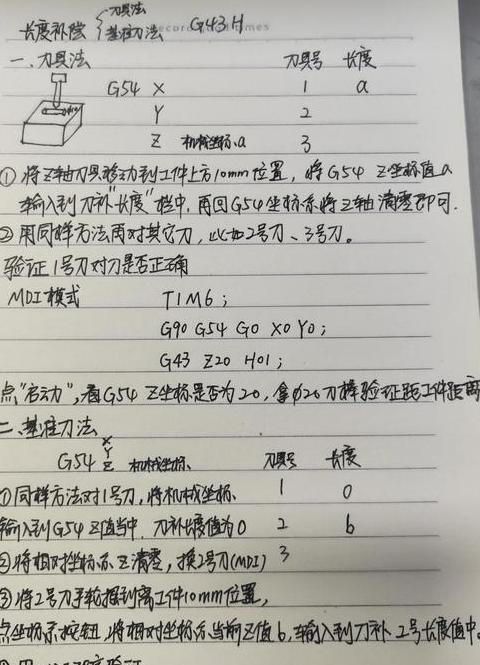 长度补偿 { 刀具法 基准刀法 G43H
一、刀具法 刀具号 长度
G54 X 1 a
Y 2
Z 机械坐标、a 3
① 将Z轴刀具移动到工件上方10mm位置，将G54 Z坐标值a
输入到刀补"长度"栏中，再回G54坐标系将Z轴清零即可.
② 用同样方法再对其它刀，比如2号刀、3号刀。
验证1号刀对刀是否正确
MDI模式 T1M6;
G90 G54 G0 X0 Y0;
G43 Z20 H01;
点"启动"，看G54 Z坐标是否为20，拿φ20刀棒验证距工件距离
二、基准刀法
G54 X Y Z 机械坐标、 刀具号 长度
①同样方法对1号刀，将机械坐标、 1 0
输入到G54 Z值当中，刀补长度值为0 2 b
②将相对坐标系Z清零，换2号刀(MDI) 3
③将2号刀手轮摇到离工件10mm位置，
点坐标系按钮，将相对坐标系当前Z值b，输入到刀补2号长度值中。